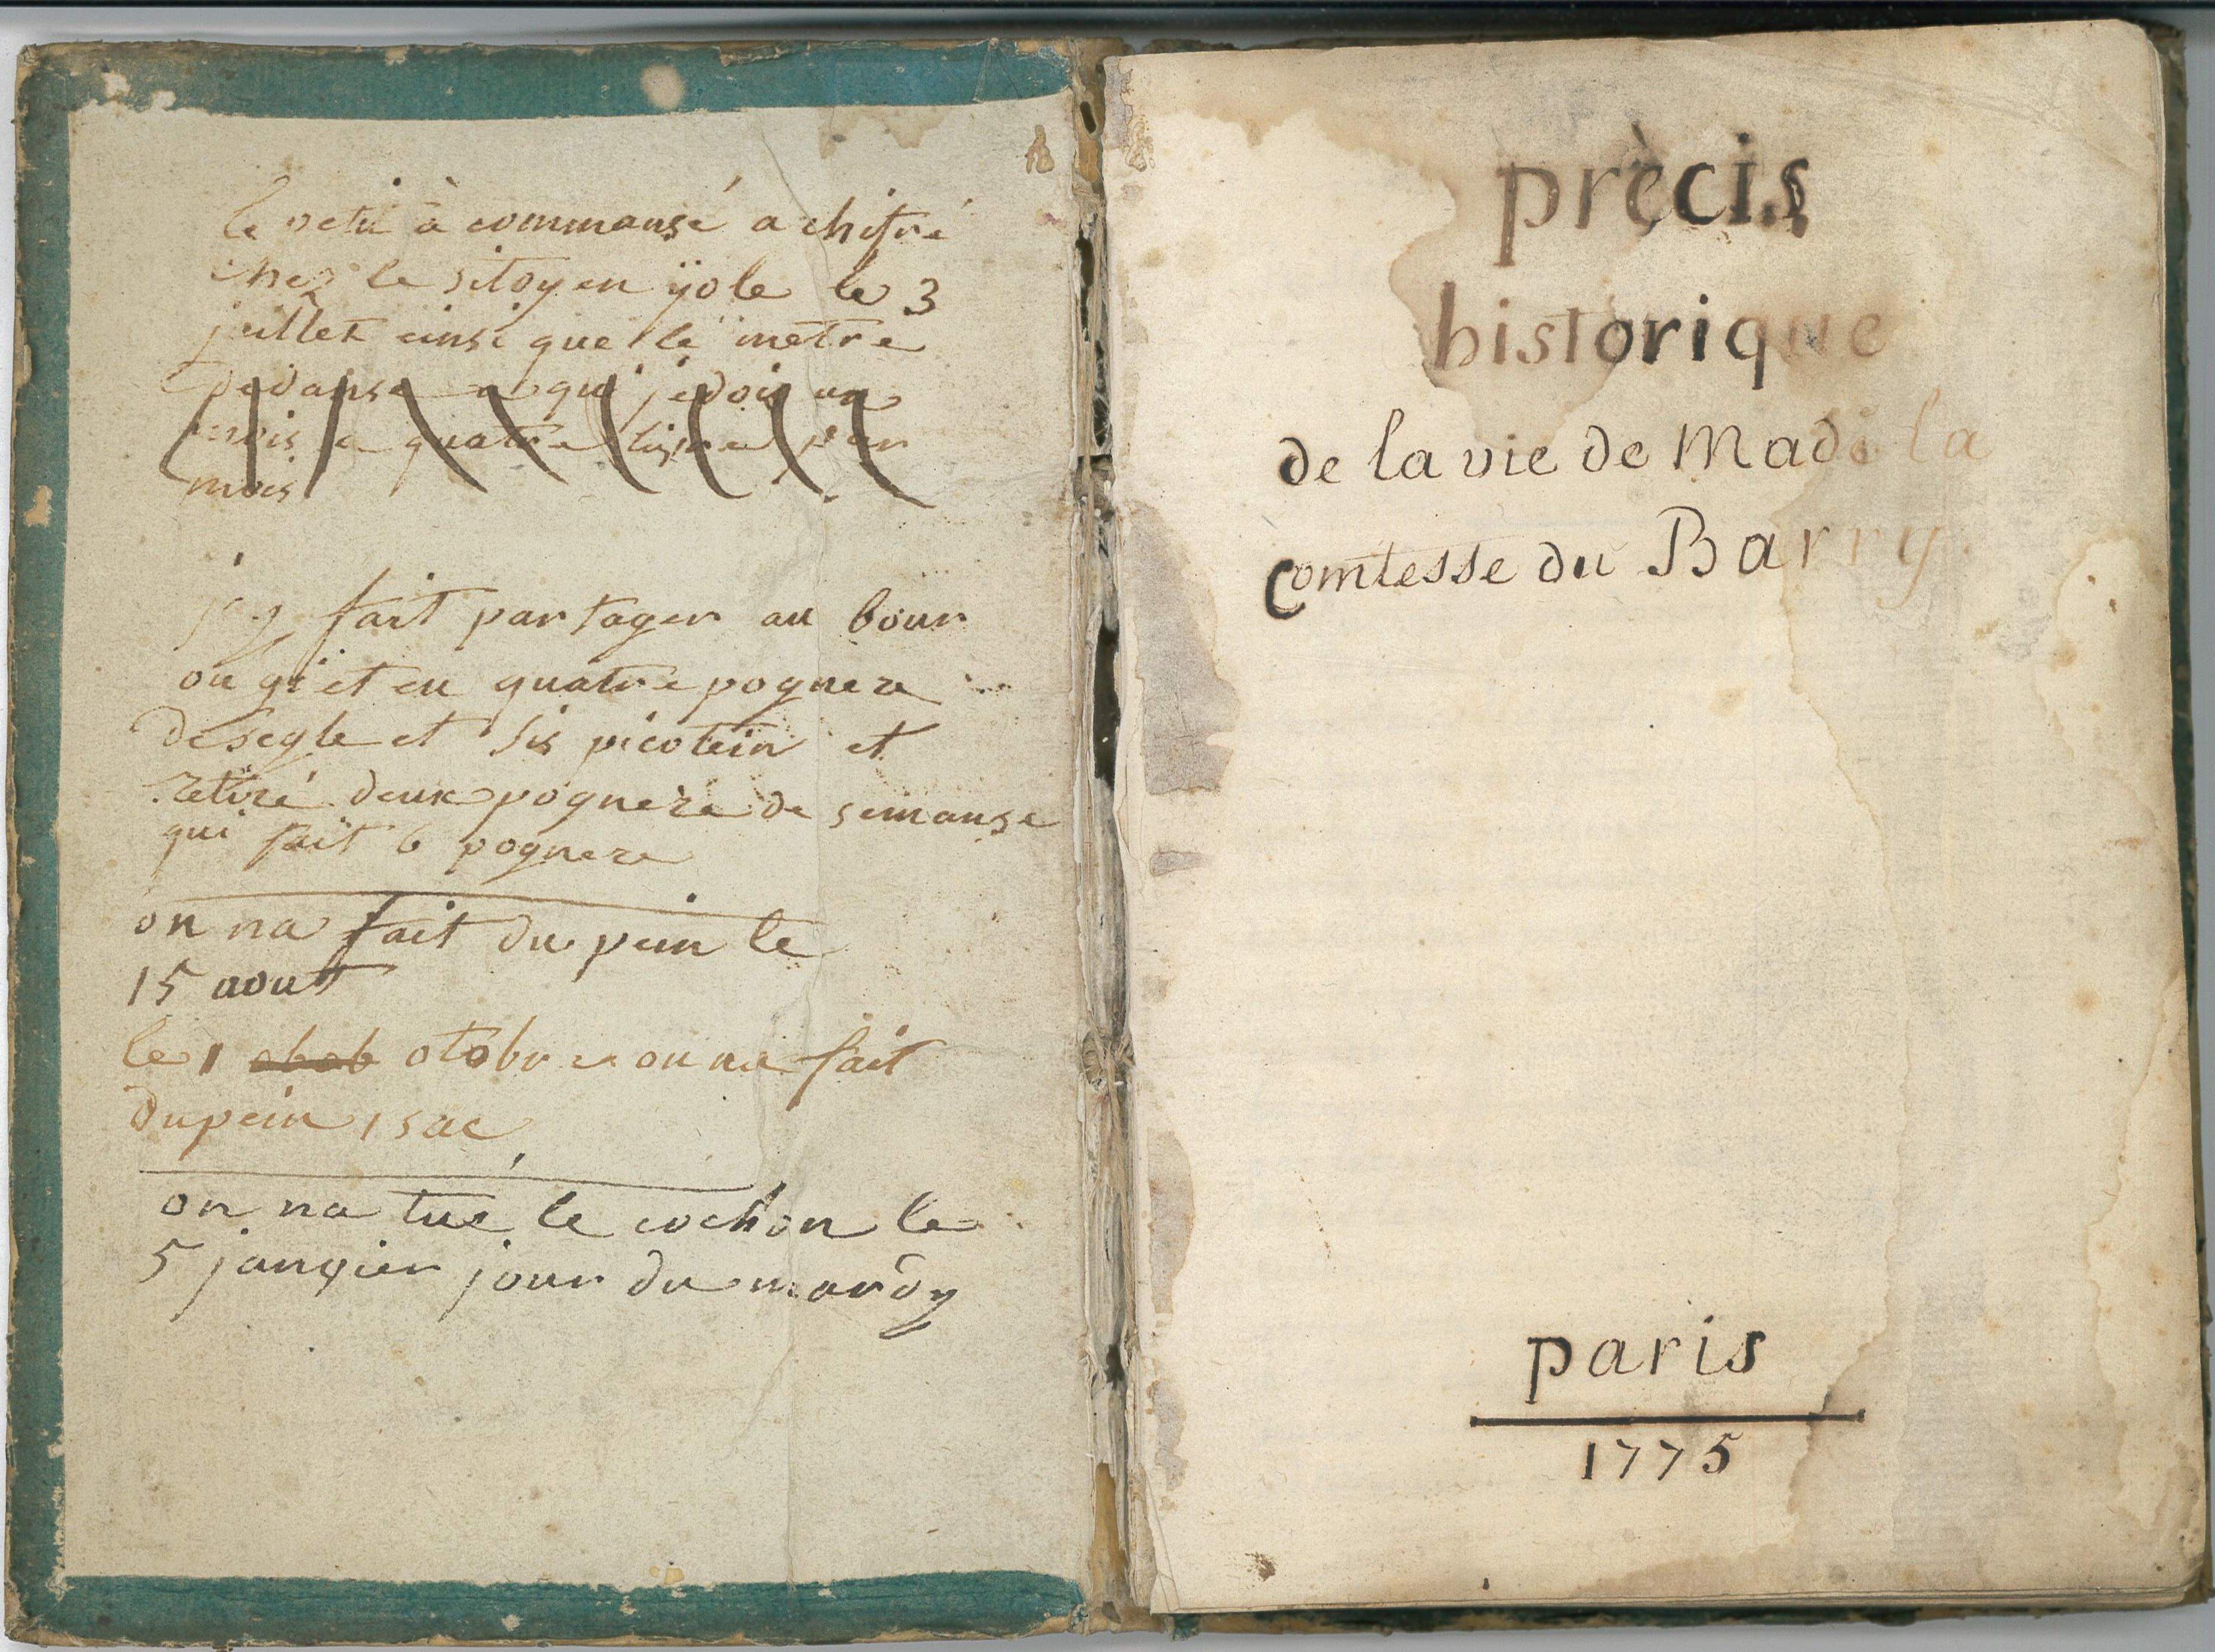 le petit à commansé a chifré
chez le sitoyen ÿole le 3
juillet einsi que le metre
de danse a qui je dois un
mois a quatre livre par
mois
j'ey fait partager au bour
on gi et eu quatre pognere
de segle et sis picotein et
retiré deux pognere de semanse
qui fait 6 pognere
on na fait du pein le
15 aout
le 1 otobre on na fait
du pein 1 sac
on na tué le cochon le
5 janvier jour du mardy
prècis
historique
de la vie de Made la
Comtesse du Barry
paris
1775